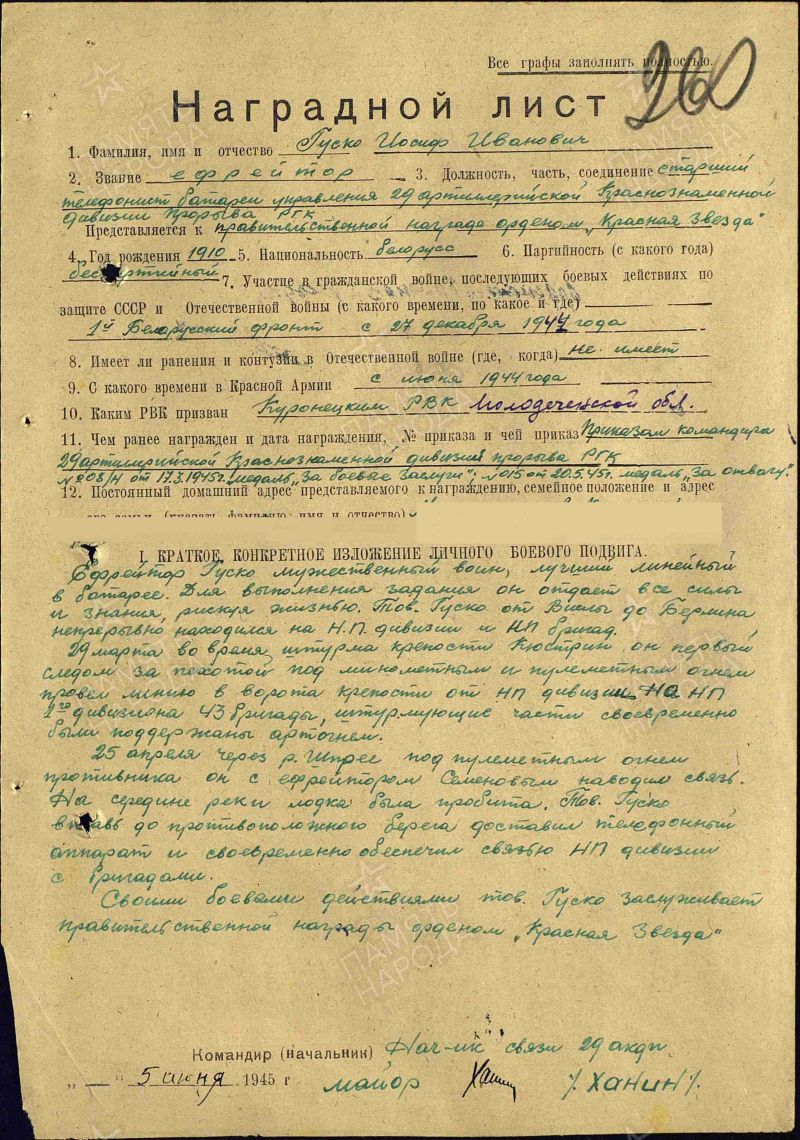 Все графы заполнять полностью.
260
Наградной лист
1. Фамилия, имя и отчество Гуско Иосиф Иванович
2. Звание ефрейтор 3. Должность, часть, соединение старший
телефонист батареи управления 29 артиллерийской Краснознаменной
дивизии Прорыва РГК
Представляется к правительственной награде орденом „Красная Звезда"
4. Год рождения 1910 5. Национальность белорусс 6. Партийность (с какого года)
беспартийный 7. Участие в гражданской войне, последующих боевых действиях по
защите СССР и Отечественной войны (с какого времени, по какое и где)
1й Белорусский фронт с 27 декабря 1944 года
8. Имеет ли ранения и контузии в Отечественной войне (где, когда) не имеет
9. С какого времени в Красной Армии с июня 1944 года
10. Каким РВК призван Куронецким РВК Молодеченской обл.
11. Чем ранее награжден и дата награждения, № приказа и чей приказ Приказом командира
29 артиллерийской Краснознаменной дивизии прорыва РГК
№ 08/н от 17.3.1945г. медаль „За боевые заслуги"; № 015 от 20.5.45г. медаль „За отвагу".
12. Постоянный домашний адрес представляемого к награждению, семейное положение и адрес
его семьи (указать фамилию, имя и отчество)
I. КРАТКОЕ, КОНКРЕТНОЕ ИЗЛОЖЕНИЕ ЛИЧНОГО БОЕВОГО ПОДВИГА.
Ефрейтор Гуско мужественный воин, лучший линейный
в батарее. Для выполнения задания он отдает все силы
и знания, рискуя жизнью. Тов. Гуско от Вислы до Берлина
непрерывно находился на Н.П. дивизии и НП бригад.
29 марта во время штурма крепости Кюстрин он первый
следом за пехотой под минометным и пулеметным огнем
провел линию в ворота крепости от НП дивизии на НП
2го дивизиона 43 бригады, штурмующие части своевременно
были поддержаны артогнем.
25 апреля через р. Шпрее под пулеметным огнем
противника он с ефрейтором Семеновым наводил связь.
На середине реки лодка была пробита. Тов. Гуско
вплавь до противоположного берега доставил телефонный
аппарат и своевременно обеспечил связью НП дивизии
с бригадами.
Своими боевыми действиями тов. Гуско заслуживает
правительственной награды орденом „Красная Звезда"
Командир (начальник) Нач-ик связи 29 акдп
„—" 5 июня 1945 г майор Ханин /. ХАНИН /.
ПАМЯТЬ НАРОДА